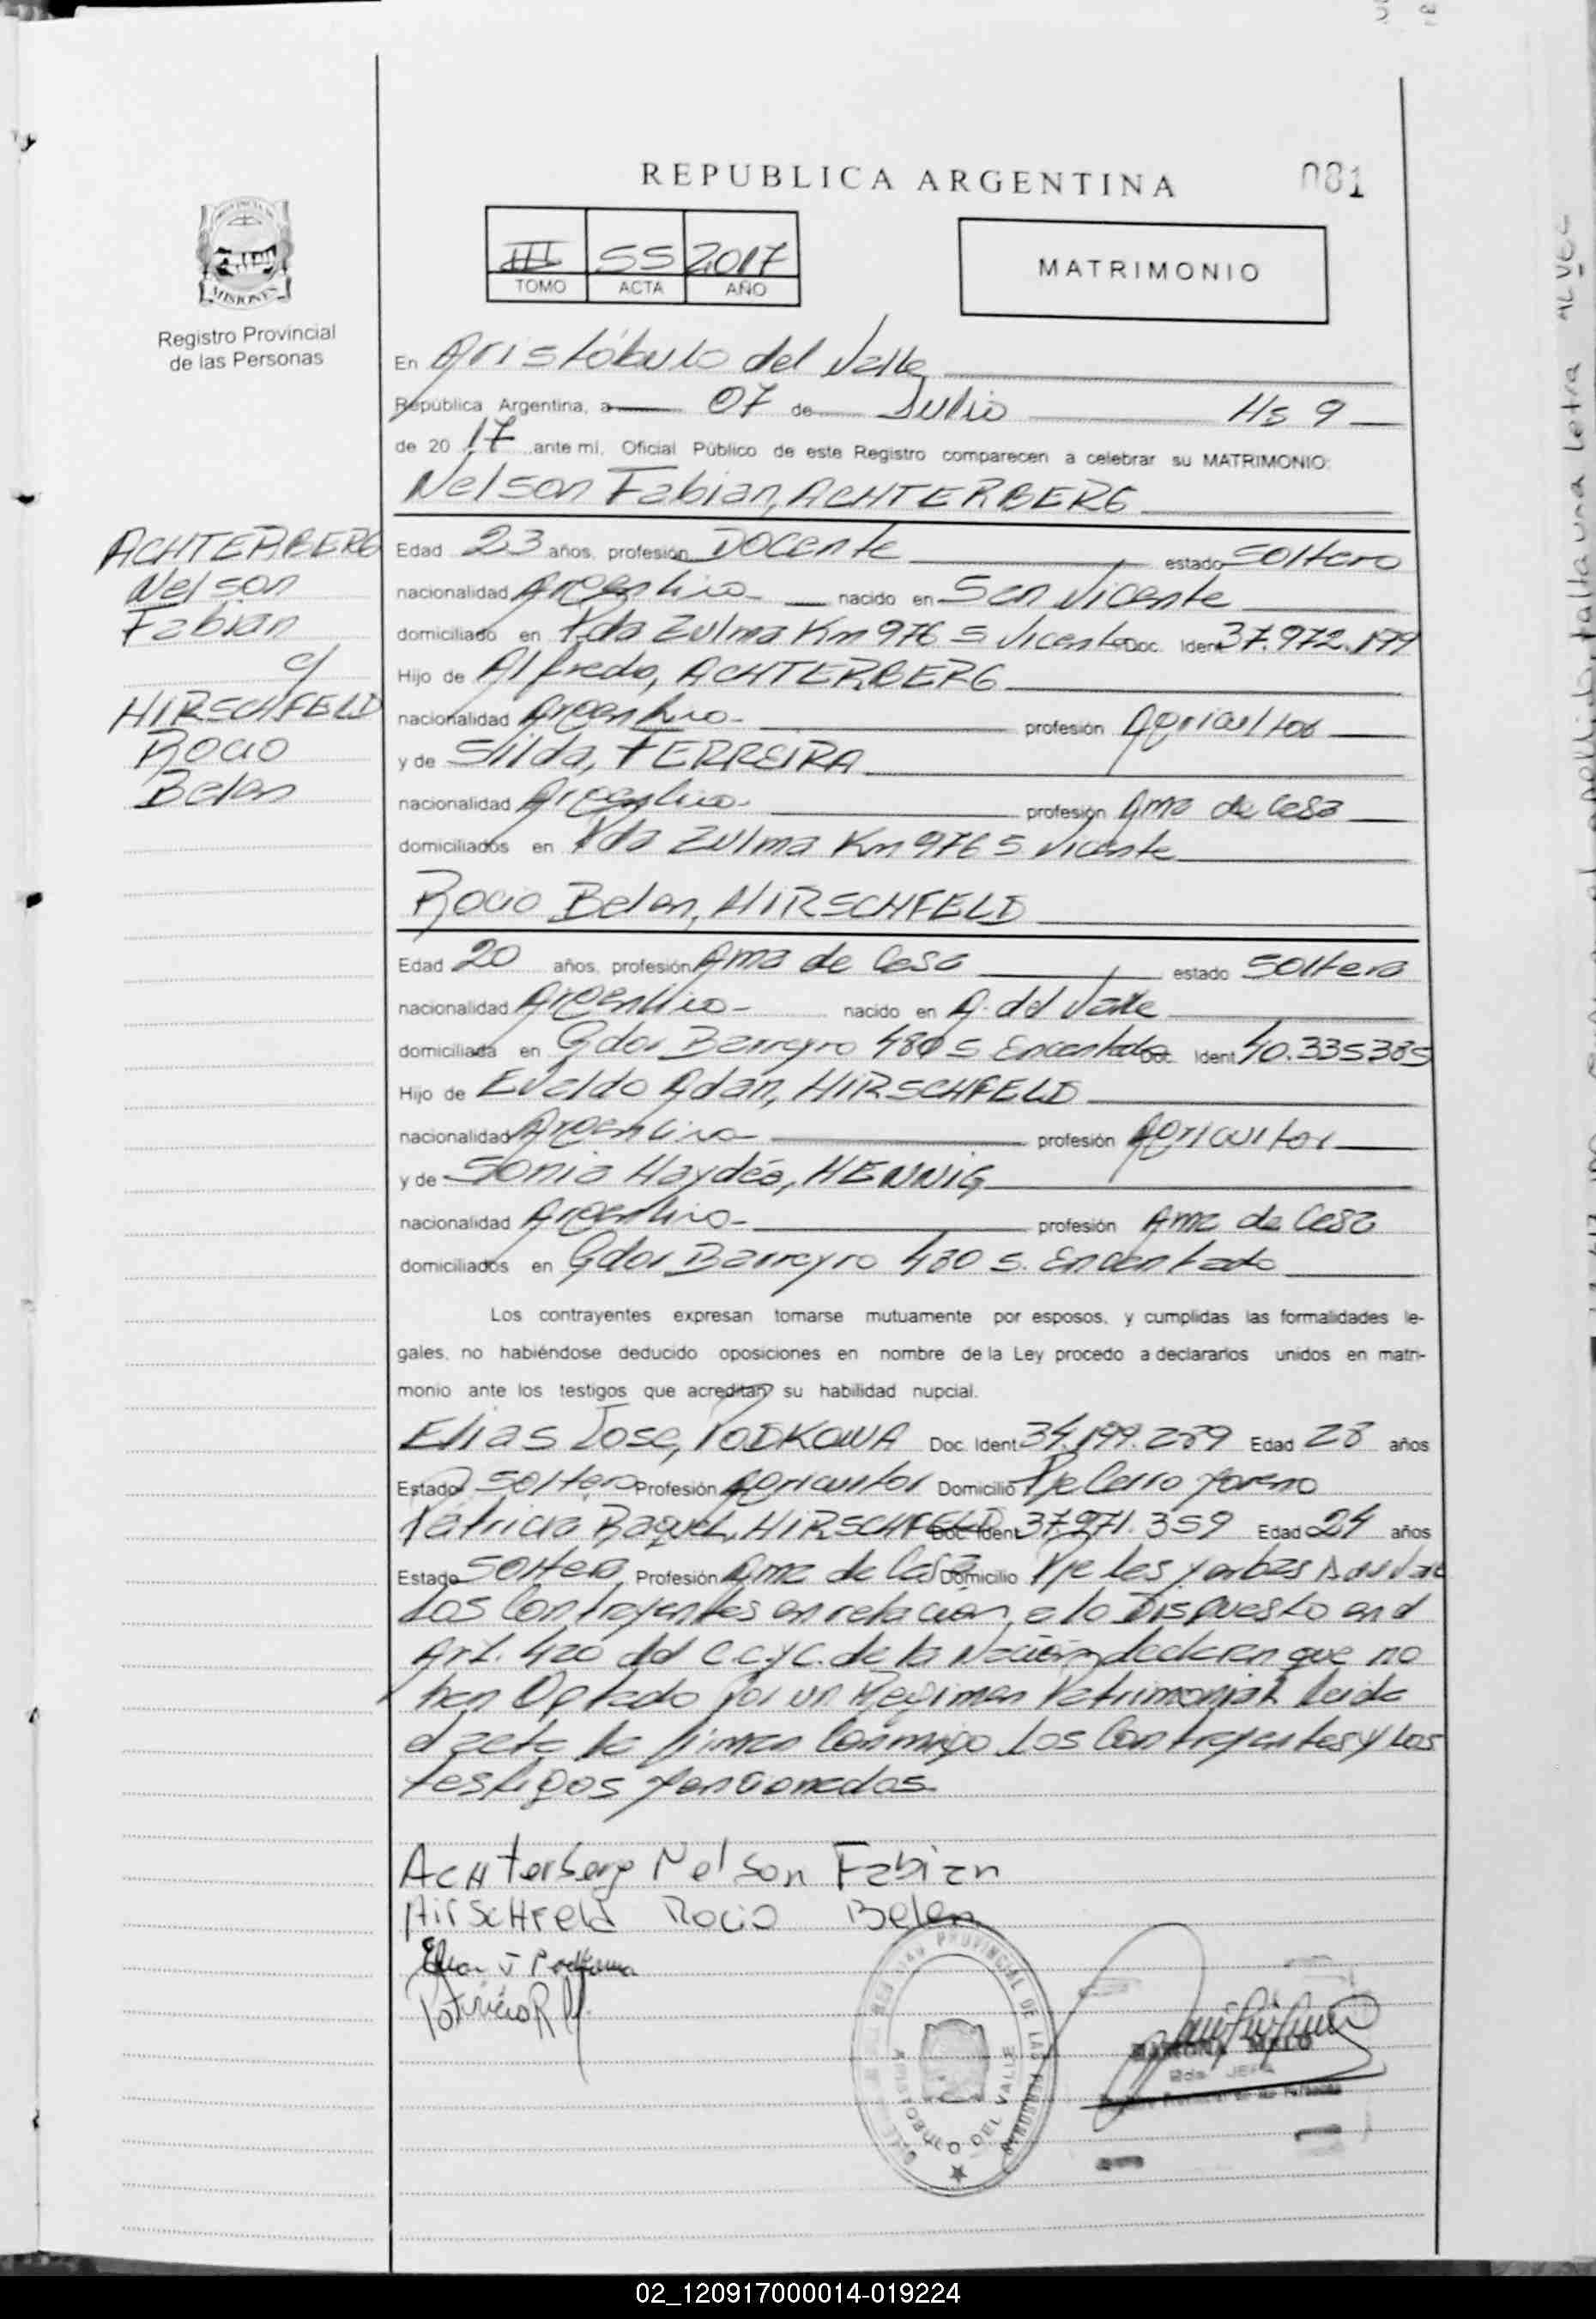 REPUBLICA ARGENTINA
081
III 55 2017
TOMO ACTA AÑO
MATRIMONIO
MISIONES
Registro Provincial
de las Personas
En Aristóbulo del Valle
República Argentina, a 07 de Julio Hs 9
de 20 17 ante mi, Oficial Público de este Registro comparecen a celebrar su MATRIMONIO:
Nelson Fabian, ACHTERBERG
ACHTERBERG
Nelson
Fabian
c/
HIRSCHFELD
Rocio
Belen
Edad 23 años, profesión Docente estado Soltero
nacionalidad Argentina nacido en San Vicente
domiciliado en Pda Zulma Km 976 S Vicente Doc. Ident 37.972.199
Hijo de Alfredo, ACHTERBERG
nacionalidad Argentina profesión Agricultor
y de Silda, FERREIRA
nacionalidad Argentina profesión Ama de Casa
domiciliados en Pda Zulma Km 976 S Vicente
Rocio Belen, HIRSCHFELD
Edad 20 años, profesión Ama de Casa estado Soltera
nacionalidad Argentina nacido en A. del Valle
domiciliada en Gdor Barreyro 480 S Encantado Doc. Ident 40.335385
Hijo de Evaldo Adan, HIRSCHFELD
nacionalidad Argentina profesión Agricultor
y de Sonia Haydéa, HENNIG
nacionalidad Argentina profesión Ama de Casa
domiciliados en Gdor Barreyro 480 S. Encantado
Los contrayentes expresan tomarse mutuamente por esposos, y cumplidas las formalidades le-
gales, no habiéndose deducido oposiciones en nombre de la Ley procedo a declararlos unidos en matri-
monio ante los testigos que acreditan su habilidad nupcial.
Elias Jose, PODKOWA Doc. Ident 34.199.289 Edad 28 años
Estado Soltero Profesión Agricultor Domicilio Pje Cerro Moreno
Patricia Raquel, HIRSCHFELD Doc. Ident 37.971.359 Edad 24 años
Estado Soltera Profesión Ama de Casa Domicilio Pje las Yerbas A del Valle
Los Contrayentes en relacion a lo Dispuesto en el
Art. 420 del C.C.yC. de la Nación declaran que no
han Optado por un Regimen Patrimonial leida
el acta la firman Conmigo Los Contrayentes y Los
testigos mencionados.
Achterberg Nelson Fabian
Hirschfeld Rocio Belen
Elias J Podkowa
Patricia R H.
REGISTRO PROVINCIAL DE LAS PERSONAS
ARISTOBULO DEL VALLE
RAMONA MELO
JEFA
Registro Provincial de las Personas
02_120917000014-019224